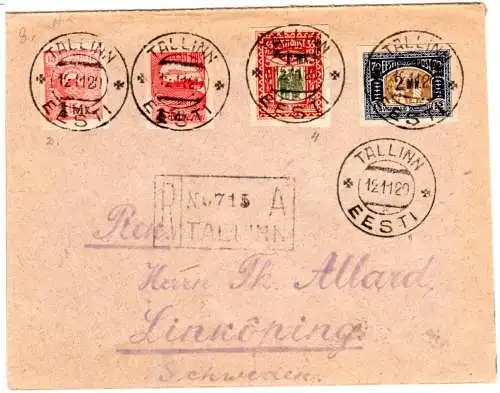 TALLINN
12.11.20
EESTI
TALLINN
12.11.20
EESTI
TALLINN
EESTI
TALLINN
EESTI
1 Mk.
2 Mk.
TALLINN
12.11.20
EESTI
R No 715 A
TALLINN
Herrn Th. Allard,
Linköping.
Schweden.